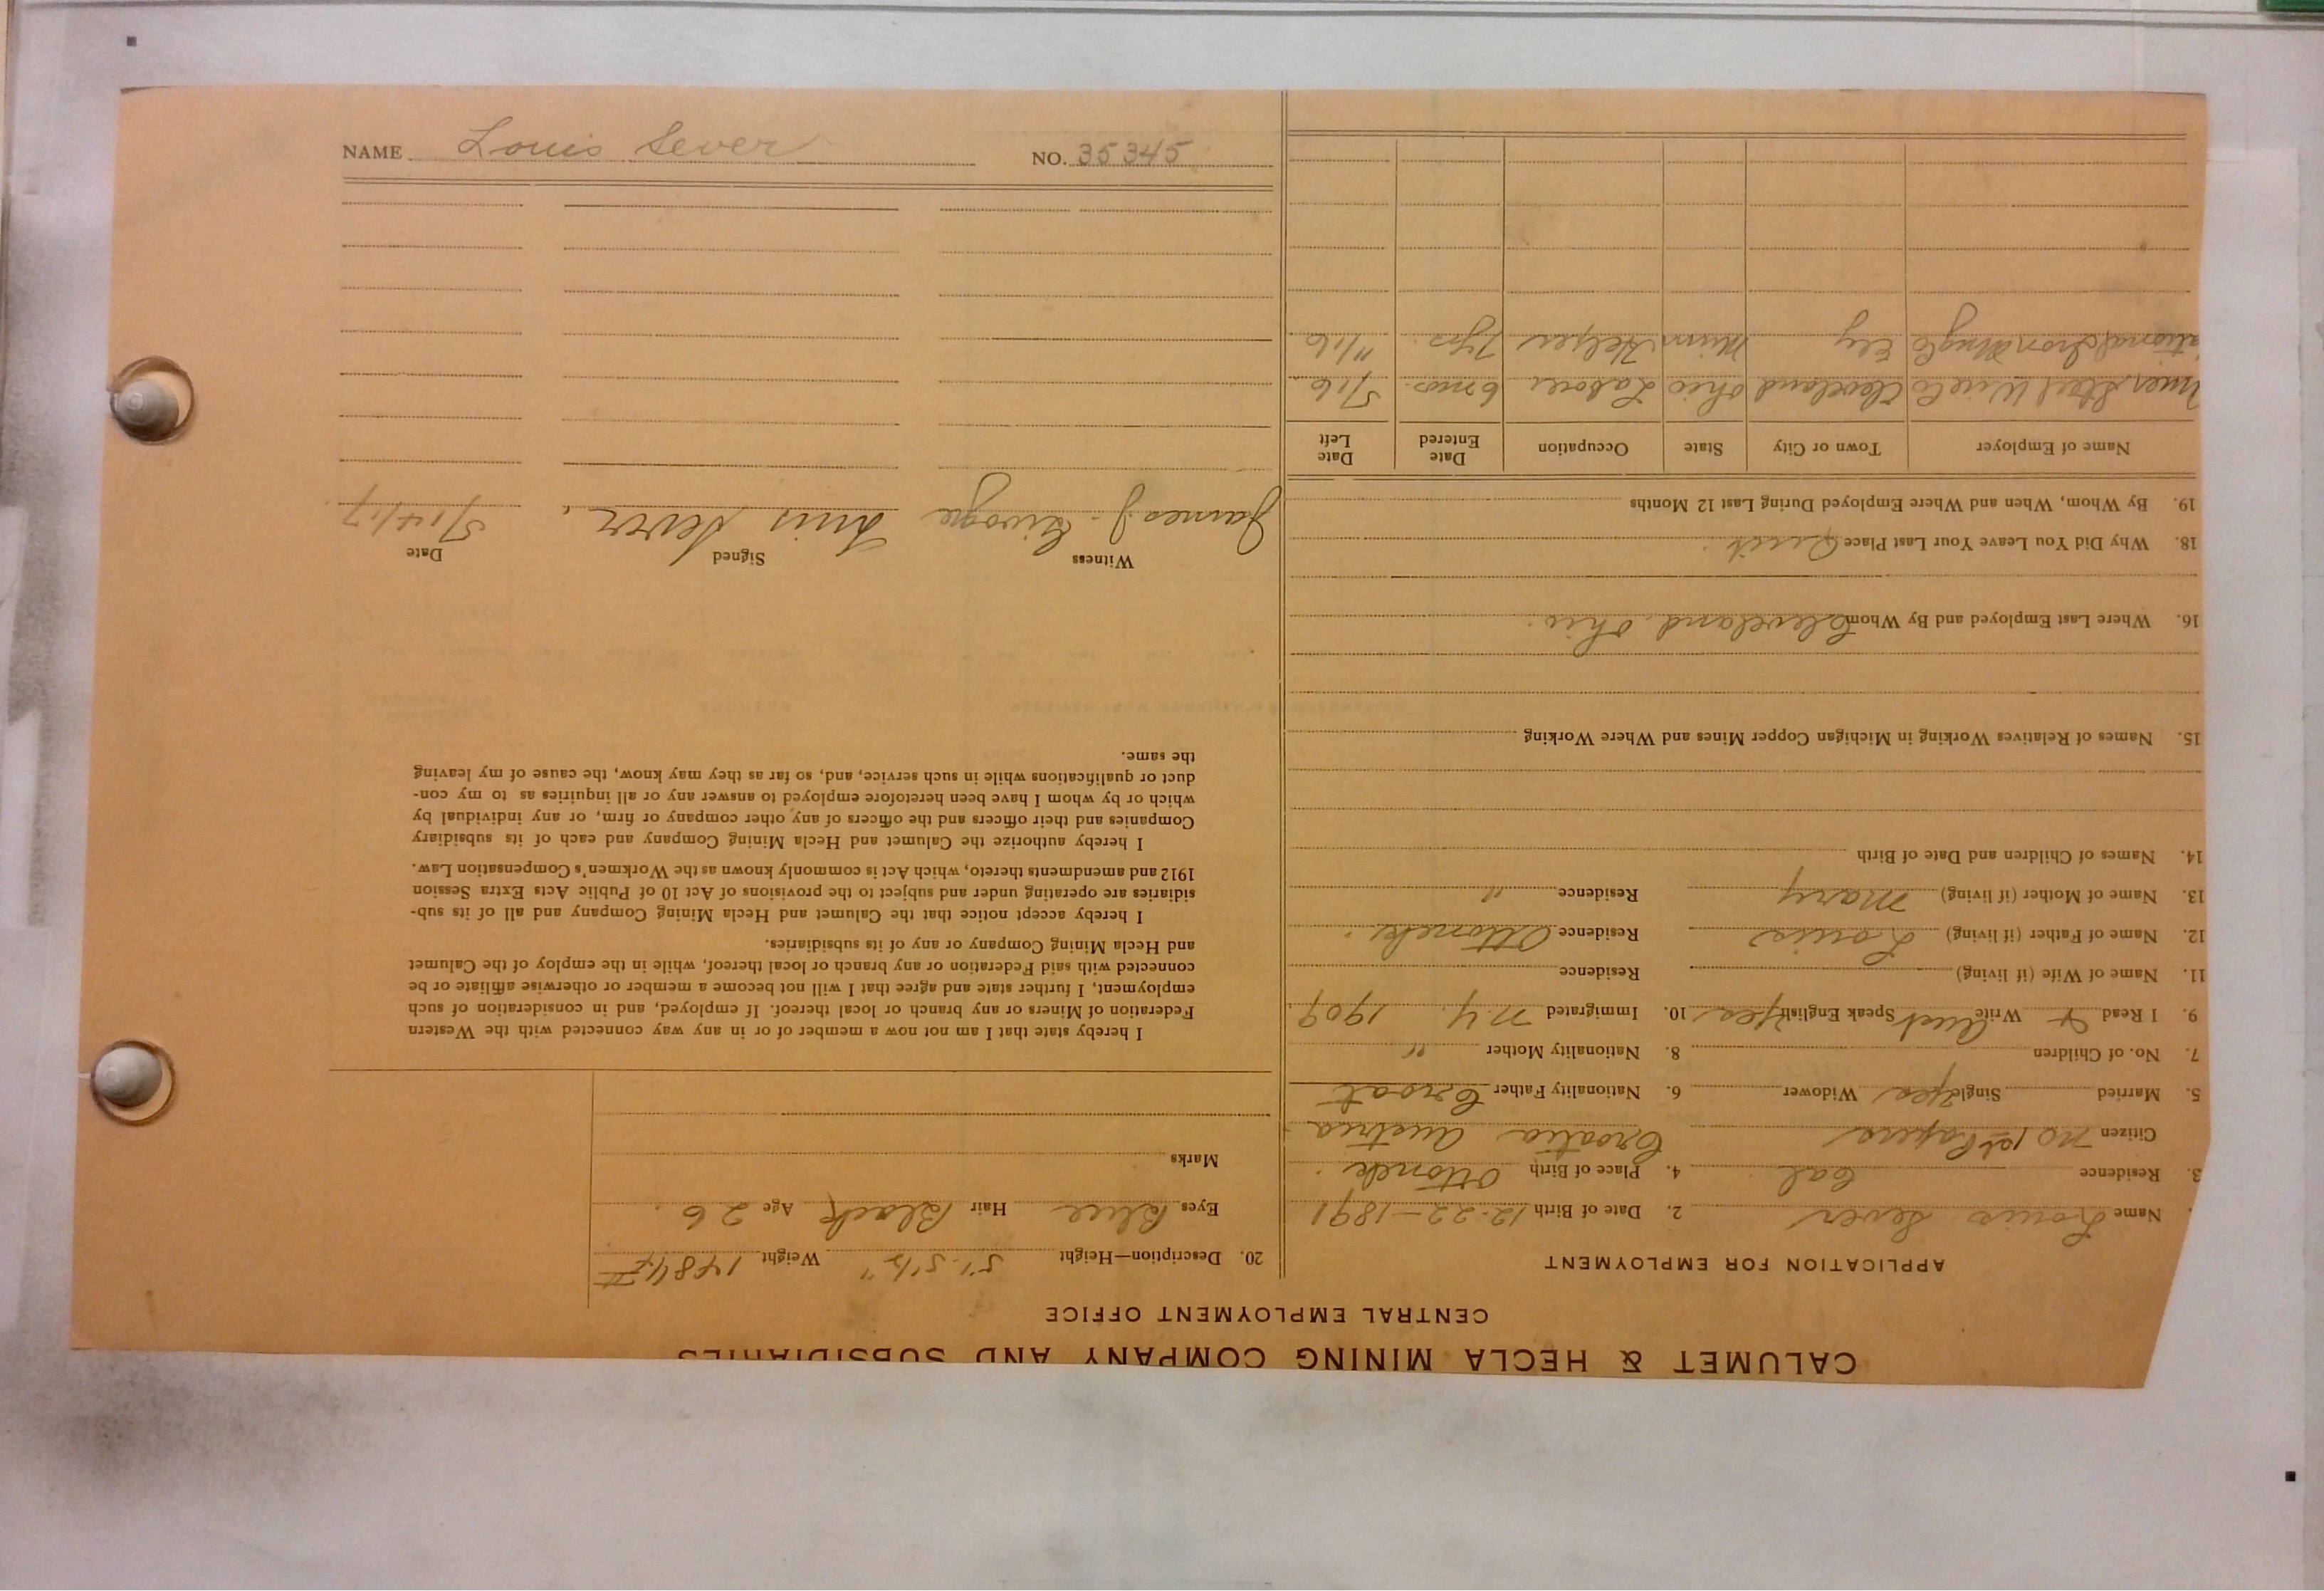 NAME Louis Sever NO. 35345
CALUMET & HECLA MINING COMPANY AND SUBSIDIARIES
CENTRAL EMPLOYMENT OFFICE
APPLICATION FOR EMPLOYMENT
Name Louis Sever 2. Date of Birth 12-22-1891
3. Residence Cal 4. Place of Birth Ottonch.
Citizen no 1st Papers Croatia Austria
5. Married Single yes Widower 6. Nationality Father Croat
7. No. of Children 8. Nationality Mother "
9. I Read & Write Aust Speak English yes 10. Immigrated N.Y. 1909
11. Name of Wife (if living) Residence
12. Name of Father (if living) Louis Residence Ottonch.
13. Name of Mother (if living) Mary Residence "
14. Names of Children and Date of Birth
15. Names of Relatives Working in Michigan Copper Mines and Where Working
16. Where Last Employed and By Whom Cleveland Ohio.
18. Why Did You Leave Your Last Place Quit.
19. By Whom, When and Where Employed During Last 12 Months
Name of Employer Town or City State Occupation Date Entered Date Left
Amer Steel Wire Co Cleveland Ohio Laborer 6 mos. 5/16
Iron Mng Co Ely Minn Helper 7 yrs. 11/16
20. Description—Height 5'-5 1/2" Weight 148#
Eyes Blue Hair Black Age 26.
Marks
I hereby state that I am not now a member of or in any way connected with the Western
Federation of Miners or any branch or local thereof. If employed, and in consideration of such
employment, I further state and agree that I will not become a member or otherwise affiliate or be
connected with said Federation or any branch or local thereof, while in the employ of the Calumet
and Hecla Mining Company or any of its subsidiaries.
I hereby accept notice that the Calumet and Hecla Mining Company and all of its sub-
sidiaries are operating under and subject to the provisions of Act 10 of Public Acts Extra Session
1912 and amendments thereto, which Act is commonly known as the Workmen's Compensation Law.
I hereby authorize the Calumet and Hecla Mining Company and each of its subsidiary
Companies and their officers and the officers of any other company or firm, or any individual by
which or by whom I have been heretofore employed to answer any or all inquiries as to my con-
duct or qualifications while in such service, and, so far as they may know, the cause of my leaving
the same.
Witness Signed Date
James J. Luis Sever. 5/14/17